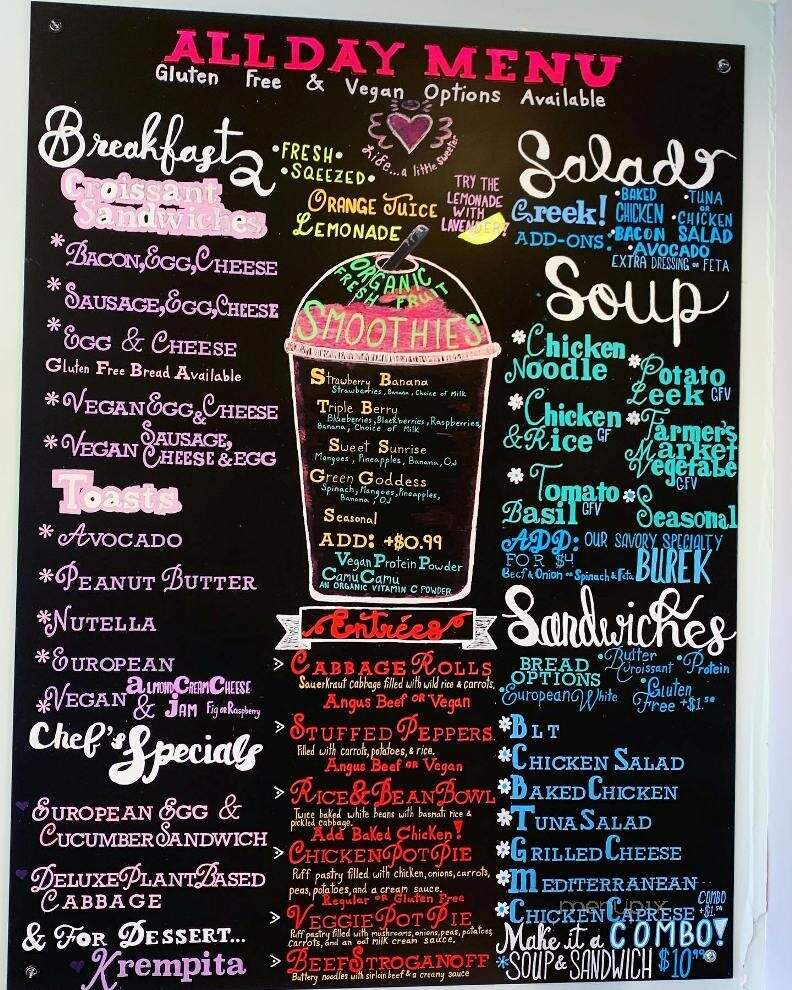 ALL DAY MENU
Gluten Free & Vegan Options Available
Breakfast
Croissant
Sandwiches
*Bacon, Egg, Cheese
*Sausage, Egg, Cheese
*Egg & Cheese
Gluten Free Bread Available
*Vegan Egg & Cheese
*Vegan Sausage,
Cheese & Egg
Toasts
*Avocado
*Peanut Butter
*Nutella
*European
*Vegan Almond Cream Cheese
& Jam Fig or Raspberry
Chef's Specials
European Egg &
Cucumber Sandwich
Deluxe Plant Based
Cabbage
& For Dessert...
Krempita
Life... a little sweeter
•FRESH•
•SQEEZED•
Orange Juice
Lemonade
TRY THE
LEMONADE
WITH
LAVENDER!
ORGANIC
FRESH FRUIT
SMOOTHIES
Strawberry Banana
Strawberries, Banana, Choice of Milk
Triple Berry
Blueberries, Blackberries, Raspberries,
Banana, Choice of Milk
Sweet Sunrise
Mangoes, Pineapples, Banana, OJ
Green Goddess
Spinach, Mangoes, Pineapples,
Banana, OJ
Seasonal
ADD: +$0.99
Vegan Protein Powder
Camu Camu
AN ORGANIC VITAMIN C POWDER
Entrées
> Cabbage Rolls
Sauerkraut cabbage filled with wild rice & carrots.
Angus Beef OR Vegan
> Stuffed Peppers
Filled with carrots, potatoes, & rice.
Angus Beef OR Vegan
> Rice & Bean Bowl
Twice baked white beans with basmati rice &
pickled cabbage.
Add Baked Chicken!
> Chicken Pot Pie
Puff pastry filled with chicken, onions, carrots,
peas, potatoes, and a cream sauce.
Regular OR Gluten Free
> Veggie Pot Pie
Puff pastry filled with mushrooms, onions, peas, potatoes,
carrots, and an oat milk cream sauce.
> Beef Stroganoff
Buttery noodles with sirloin beef & a creamy sauce
Salads
Greek!
•BAKED
CHICKEN
•TUNA
OR
CHICKEN
SALAD
ADD-ONS: •BACON
•AVOCADO
EXTRA DRESSING OR FETA
Soup
*Chicken
Noodle
*Potato
Leek GFV
*Chicken
& Rice GF
*Farmer's
Market
Vegetable
GFV
*Tomato
Basil GFV
*Seasonal
ADD: OUR SAVORY SPECIALTY
FOR $4 BUREK
Beef & Onion or Spinach & Feta
Sandwiches
BREAD
OPTIONS
•Butter
Croissant
•Protein
•European White
•Gluten
Free +$1.50
*BLT
*Chicken Salad
*Baked Chicken
*Tuna Salad
*Grilled Cheese
*Mediterranean
*Chicken Caprese COMBO +$1.50
menupix
Make it a COMBO!
*SOUP & SANDWICH $10.99